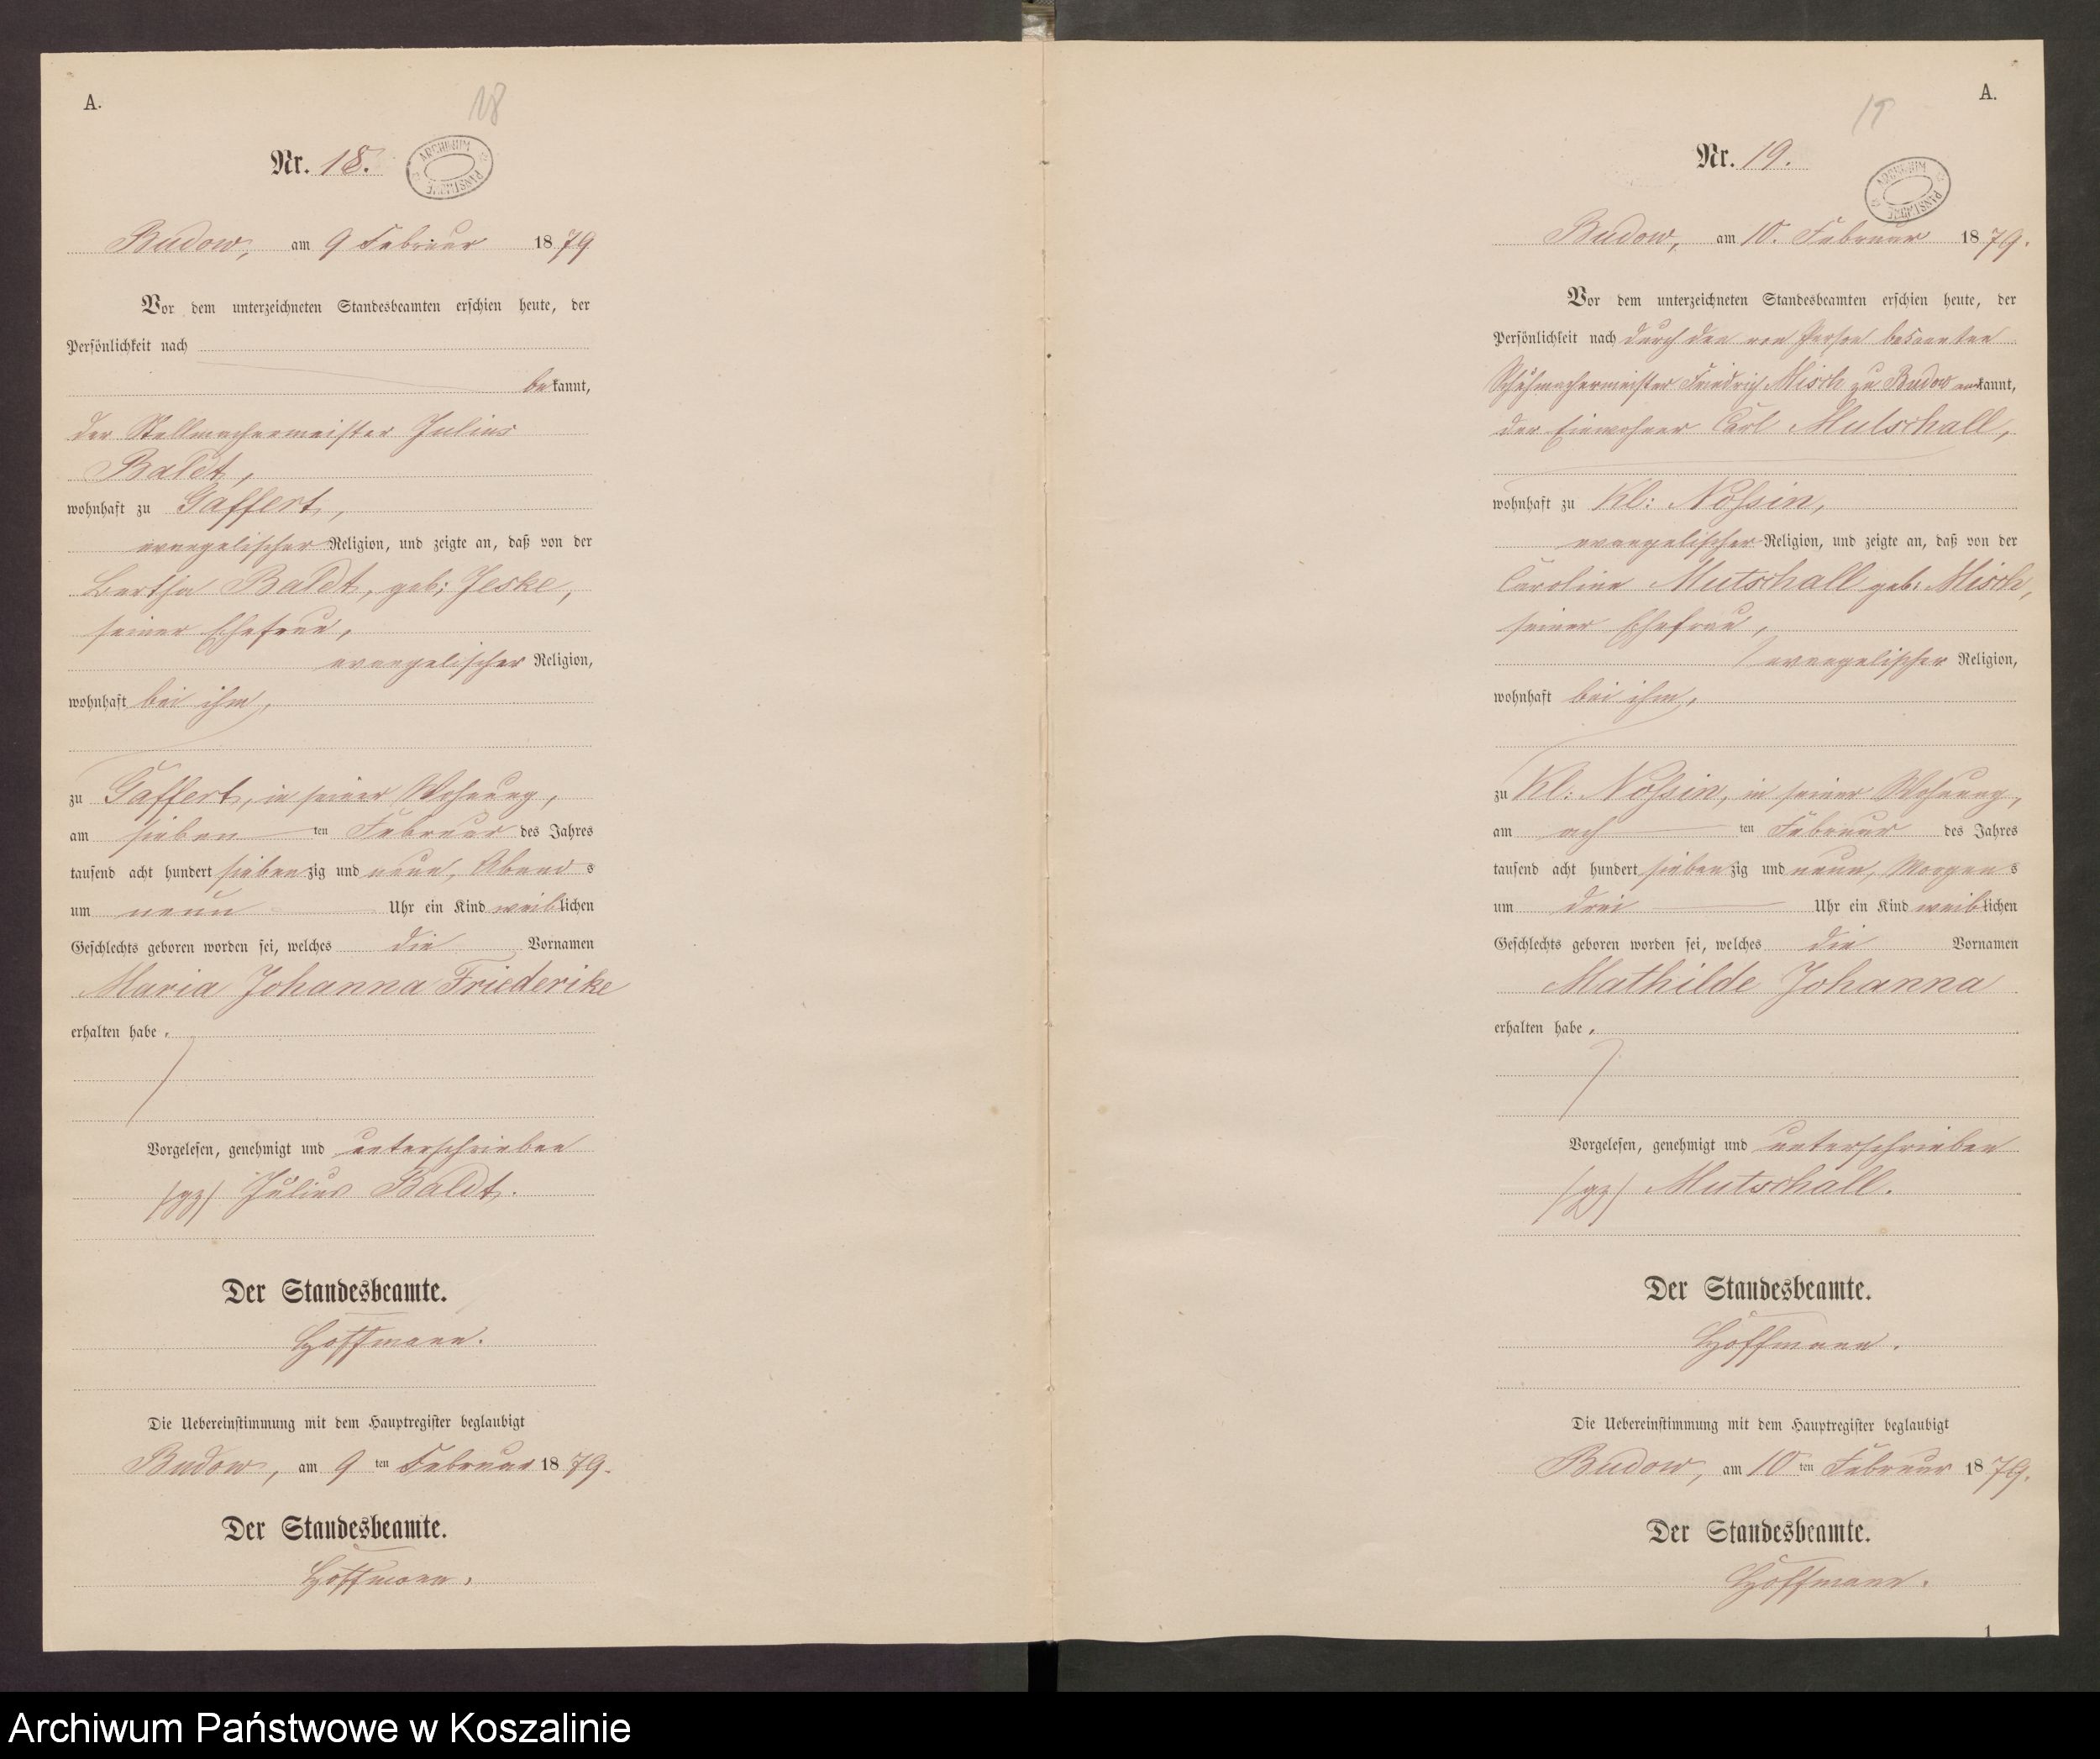 A.
18
Nr. 18.
ARCHIWUM PAŃSTWOWE
Budow, am 9 Februar 1879
Vor dem unterzeichneten Standesbeamten erschien heute, der
Persönlichkeit nach
bekannt,
der Stellmachermeister Julius
Baldt,
wohnhaft zu Gaffert,
evangelischer Religion, und zeigte an, daß von der
Bertha Baldt, geb: Jeske,
seiner Ehefrau,
evangelischer Religion,
wohnhaft bei ihm,
zu Gaffert, in seiner Wohnung,
am sieben ten Februar des Jahres
tausend acht hundert siebenzig und neun, Abends
um neun Uhr ein Kind weiblichen
Geschlechts geboren worden sei, welches die Vornamen
Maria Johanna Friederike
erhalten habe.
Vorgelesen, genehmigt und unterschrieben
(gz) Julius Baldt.
Der Standesbeamte.
Hoffmann.
Die Uebereinstimmung mit dem Hauptregister beglaubigt
Budow, am 9 ten Februar 1879.
Der Standesbeamte.
Hoffmann.
A.
19
Nr. 19.
ARCHIWUM PAŃSTWOWE
Budow, am 10. Februar 1879.
Vor dem unterzeichneten Standesbeamten erschien heute, der
Persönlichkeit nach durch den von Person bekannten
Schuhmachermeister Friedrich Misch zu Budow anerkannt,
der Einwohner Carl Mutschall,
wohnhaft zu Kl: Nossin,
evangelischer Religion, und zeigte an, daß von der
Caroline Mutschall geb: Misch,
seiner Ehefrau,
evangelischer Religion,
wohnhaft bei ihm,
zu Kl: Nossin, in seiner Wohnung,
am ach ten Februar des Jahres
tausend acht hundert siebenzig und neun, Morgens
um drei Uhr ein Kind weiblichen
Geschlechts geboren worden sei, welches die Vornamen
Mathilde Johanna
erhalten habe.
Vorgelesen, genehmigt und unterschrieben
(gz) Mutschall.
Der Standesbeamte.
Hoffmann.
Die Uebereinstimmung mit dem Hauptregister beglaubigt
Budow, am 10 ten Februar 1879.
Der Standesbeamte.
Hoffmann.
1
Archiwum Państwowe w Koszalinie